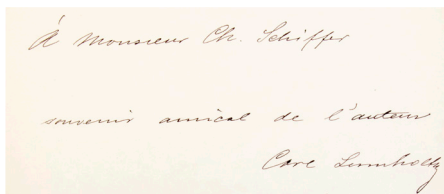 À Monsieur Ch. Schiffer
souvenir amical de l'auteur
Carl Lumholtz